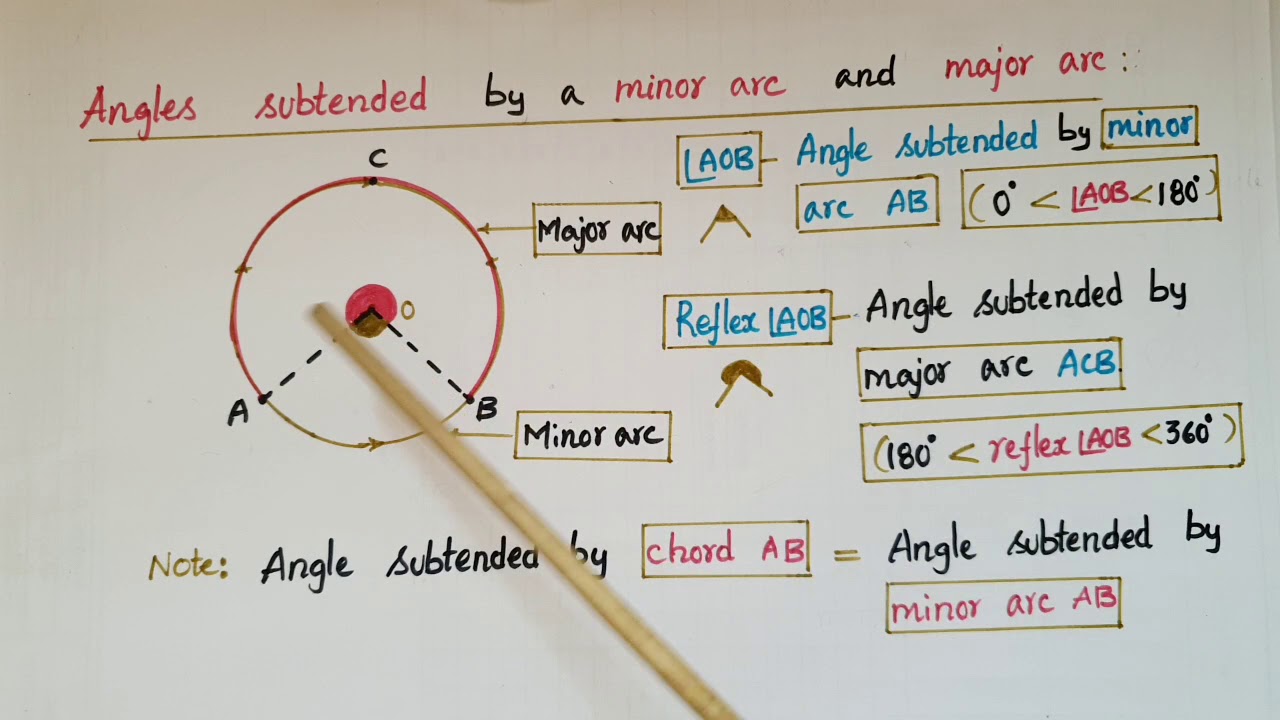 Angles subtended by a minor arc and major arc:
∠AOB - Angle subtended by minor
arc AB (0° < ∠AOB < 180°)
C
Major arc
O
Reflex ∠AOB - Angle subtended by
major arc ACB.
A
B
Minor arc
(180° < reflex ∠AOB < 360°)
Note: Angle subtended by chord AB = Angle subtended by
minor arc AB